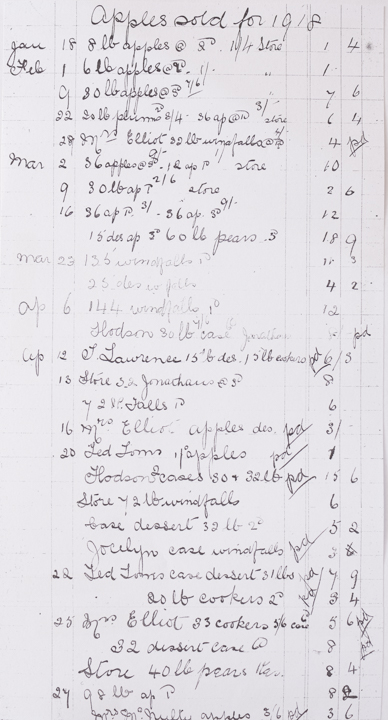 Apples sold for 1918
Jan 18 8 lb apples @ 2D. 1/4 Store 1 4
Feb 1 6 lb apples @ 2D. 1/- " 1
9 30 lb apples @ 3D 7/6 7 6
22 20 lb plums 2D 3/4. 36 ap @ D 3/ store 6 4
28 Mrs Elliot 32 lb windfalls @ 4 pd
Mar 2 36 apples @ 3D 9/-. 12 ap D 1/ store 10
9 30 lb ap D 2/6 store 2 6
16 36 ap D. 3/- 36 ap. 3D 9/- 12
15 des ap 3D 60 lb pears. 3 18 9
Mar 23 135 windfalls 1D 11 3
25 des 4 2
Ap 6 144 windfalls 1D 12
Hodson 30 lb case Jonathan pd
Ap 12 T Lawrence 15 lb des. 15 lb cookers pd 6/3
13 Store 32 Jonathans @ 3D 8
72 lb Falls D 6
16 Mrs Elliot apples des. pd 3/
20 Ted Toms apples pd 1
Hodson 2 cases 30 & 32 lb pd 15 6
Store 72 lb windfalls 6
Case dessert 32 lb 2D 5 2
Jocelyn case windfalls pd 3
22 Ted Toms case dessert 31 lbs pd 7 9
20 lb cookers 2D pd 3 4
25 Mrs Elliot 33 cookers 5/6 case 5 6 pd
32 dessert case D 8
Store 40 lb pears 8 4
27 98 lb ap D 8 2
Mrs McNulty apples 3/6 pd 3 6